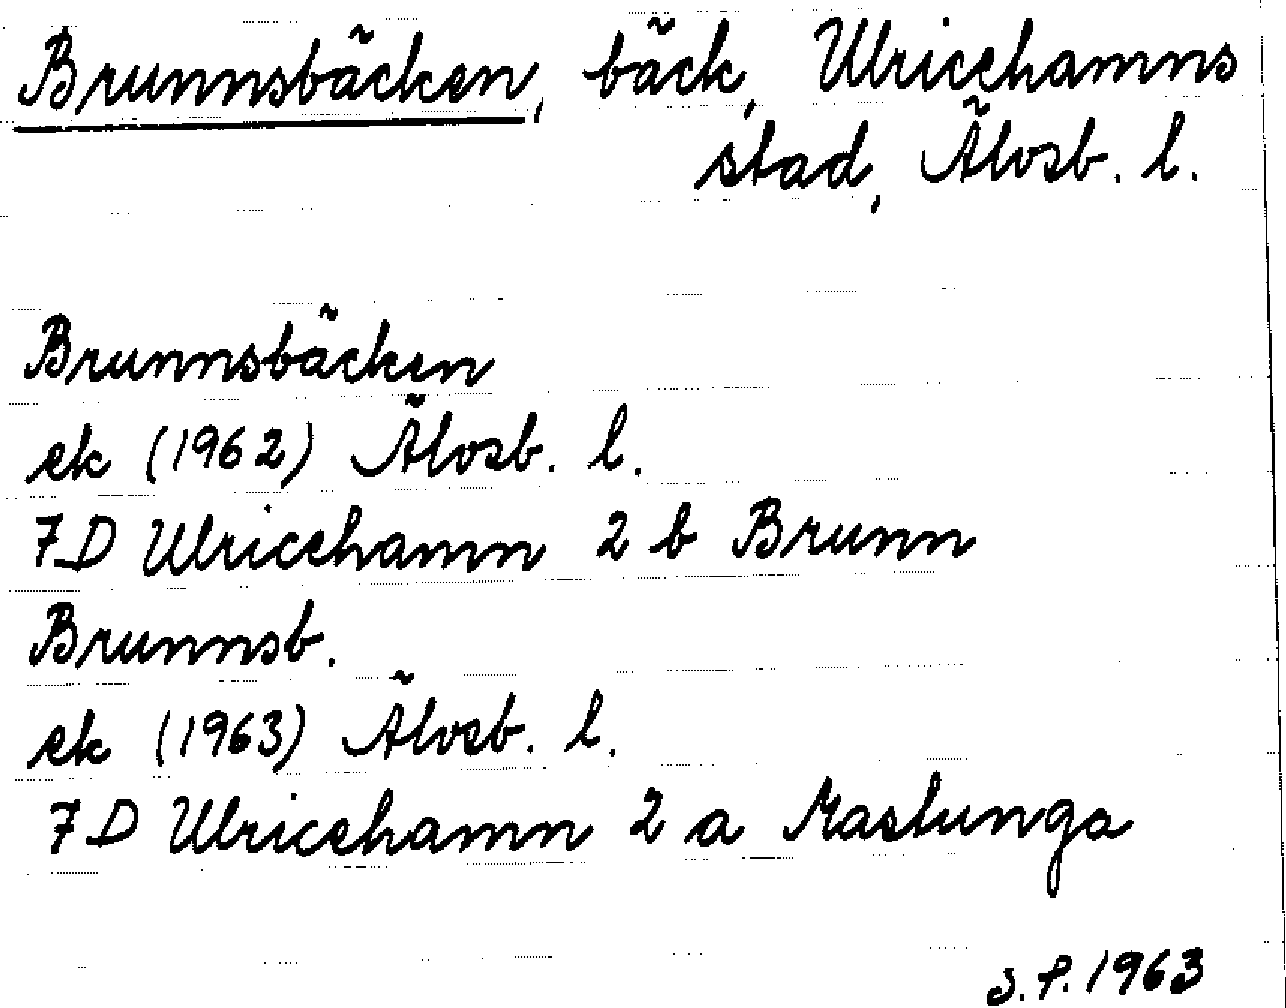 Brunnsbäcken, bäck, Ulricehamns
stad, Älvsb. l.
Brunnsbäcken
ek (1962) Älvsb. l.
7D Ulricehamn 2 b Brunn
Brunnsb.
ek (1963) Älvsb. l.
7D Ulricehamn 2 a
S.P. 1963